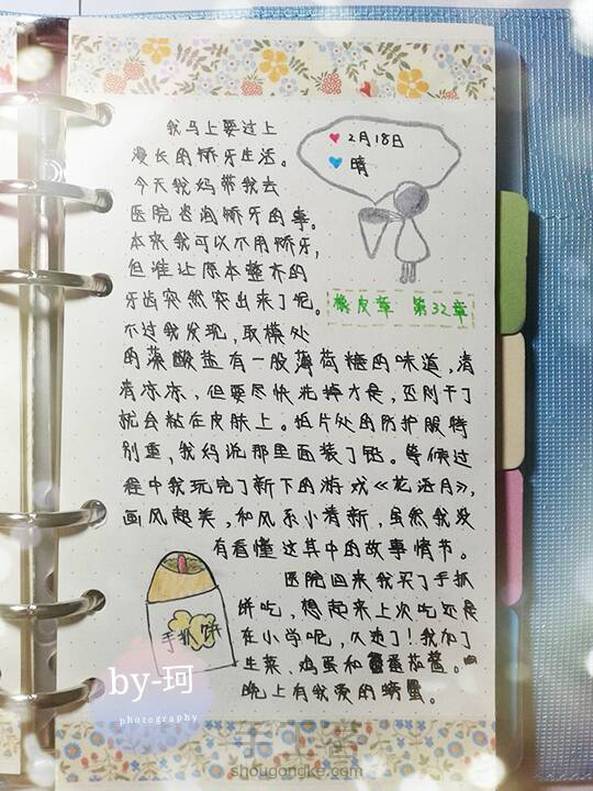 2月18日
晴
我马上要过上
漫长的矫牙生活。
今天我妈带我去
医院咨询矫牙的事。
本来我可以不用矫牙,
但谁让原本整齐的
牙齿突然突出来了呢。
橡皮章 第32章
不过我发现,取模处
的藻酸盐有一股薄荷糖的味道,清
清凉凉,但要尽快洗掉才是,否则干了
就会粘在皮肤上。拍片处的防护服特
别重,我妈说那里面装了铅。等候过
程中我玩完了新下的游戏《花语月》,
画风超美,和风系小清新,虽然我没
有看懂这其中的故事情节。
医院回来我买了手抓
饼吃,想起来上次吃还是
在小学呢,久违了!我加了
生菜、鸡蛋和番茄酱。
晚上有我爱的螃蟹。
手抓饼
by-珂
photography
手工客
shougongke.com